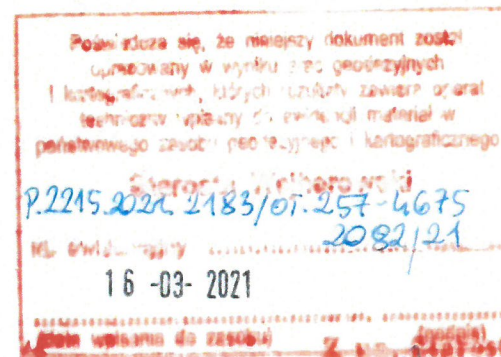 Poświadcza się, że niniejszy dokument został
opracowany w wyniku prac geodezyjnych
i kartograficznych, których rezultaty zawiera operat
techniczny wpisany do ewidencji materiałów
państwowego zasobu geodezyjnego i kartograficznego
Starosta Wejherowski
P.2215.2021.2183/OT.257-4675
2082/21
16 -03- 2021
(data wpisania do zasobu)